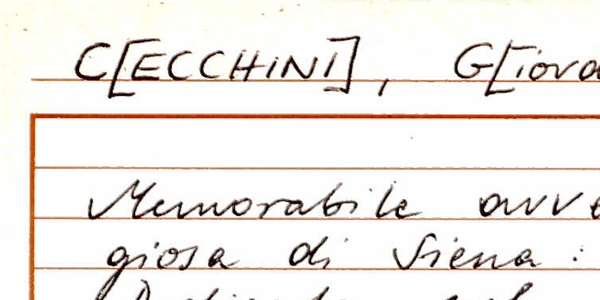 C[ECCHINI], G[iova
Memorabile avve
giosa di Siena :